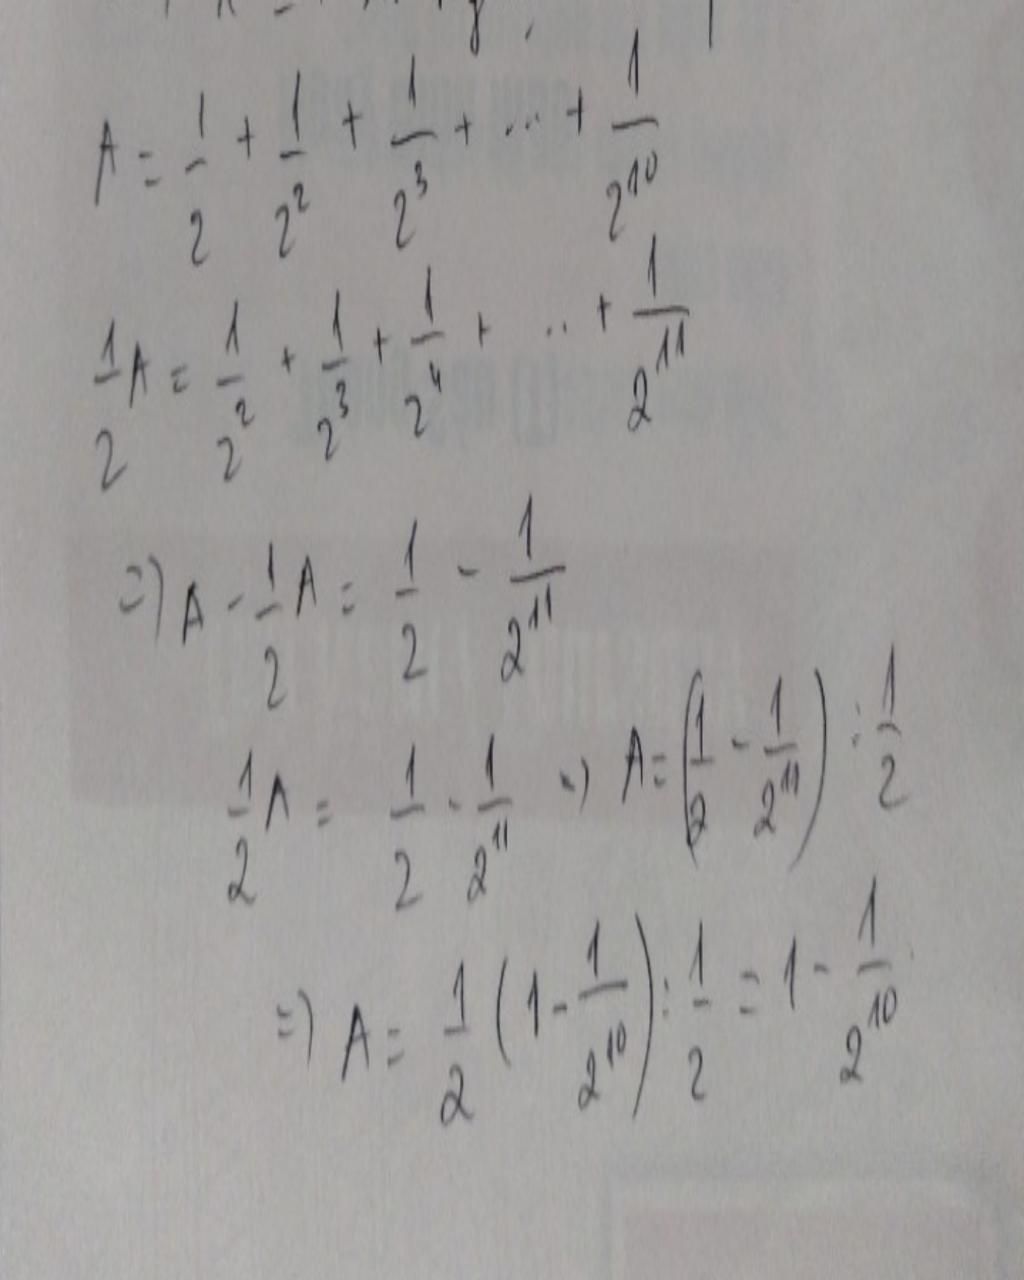 A = 1/2 + 1/2² + 1/2³ + ... + 1/2¹⁰
1/2 A = 1/2² + 1/2³ + 1/2⁴ + .. + 1/2¹¹
=) A - 1/2 A = 1/2 - 1/2¹¹
1/2 A = 1/2 - 1/2¹¹ =) A = (1/2 - 1/2¹¹) : 1/2
=) A = 1/2 (1 - 1/2¹⁰) : 1/2 = 1 - 1/2¹⁰